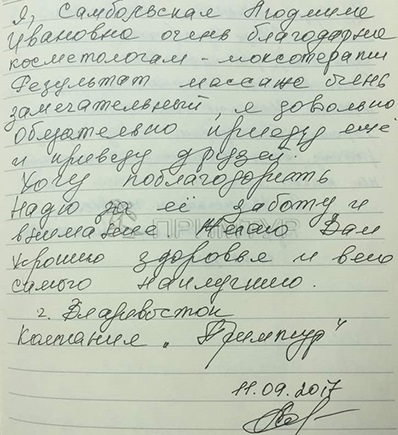 Я, Самборьская Людмила
Ивановна очень благодарна
косметологам - моксотерапи
Результат массажа очень
замечательный, я довольно
обязательно приеду ещё
и приведу друзей.
Хочу поблагодорить
Надю за её заботу и
внимание. Желаю Вам
хорошию здоровья и всего
самого наилучшию.
г. Владивосток
Компания „Примтур"
11.09.2017
ПРИМТУР